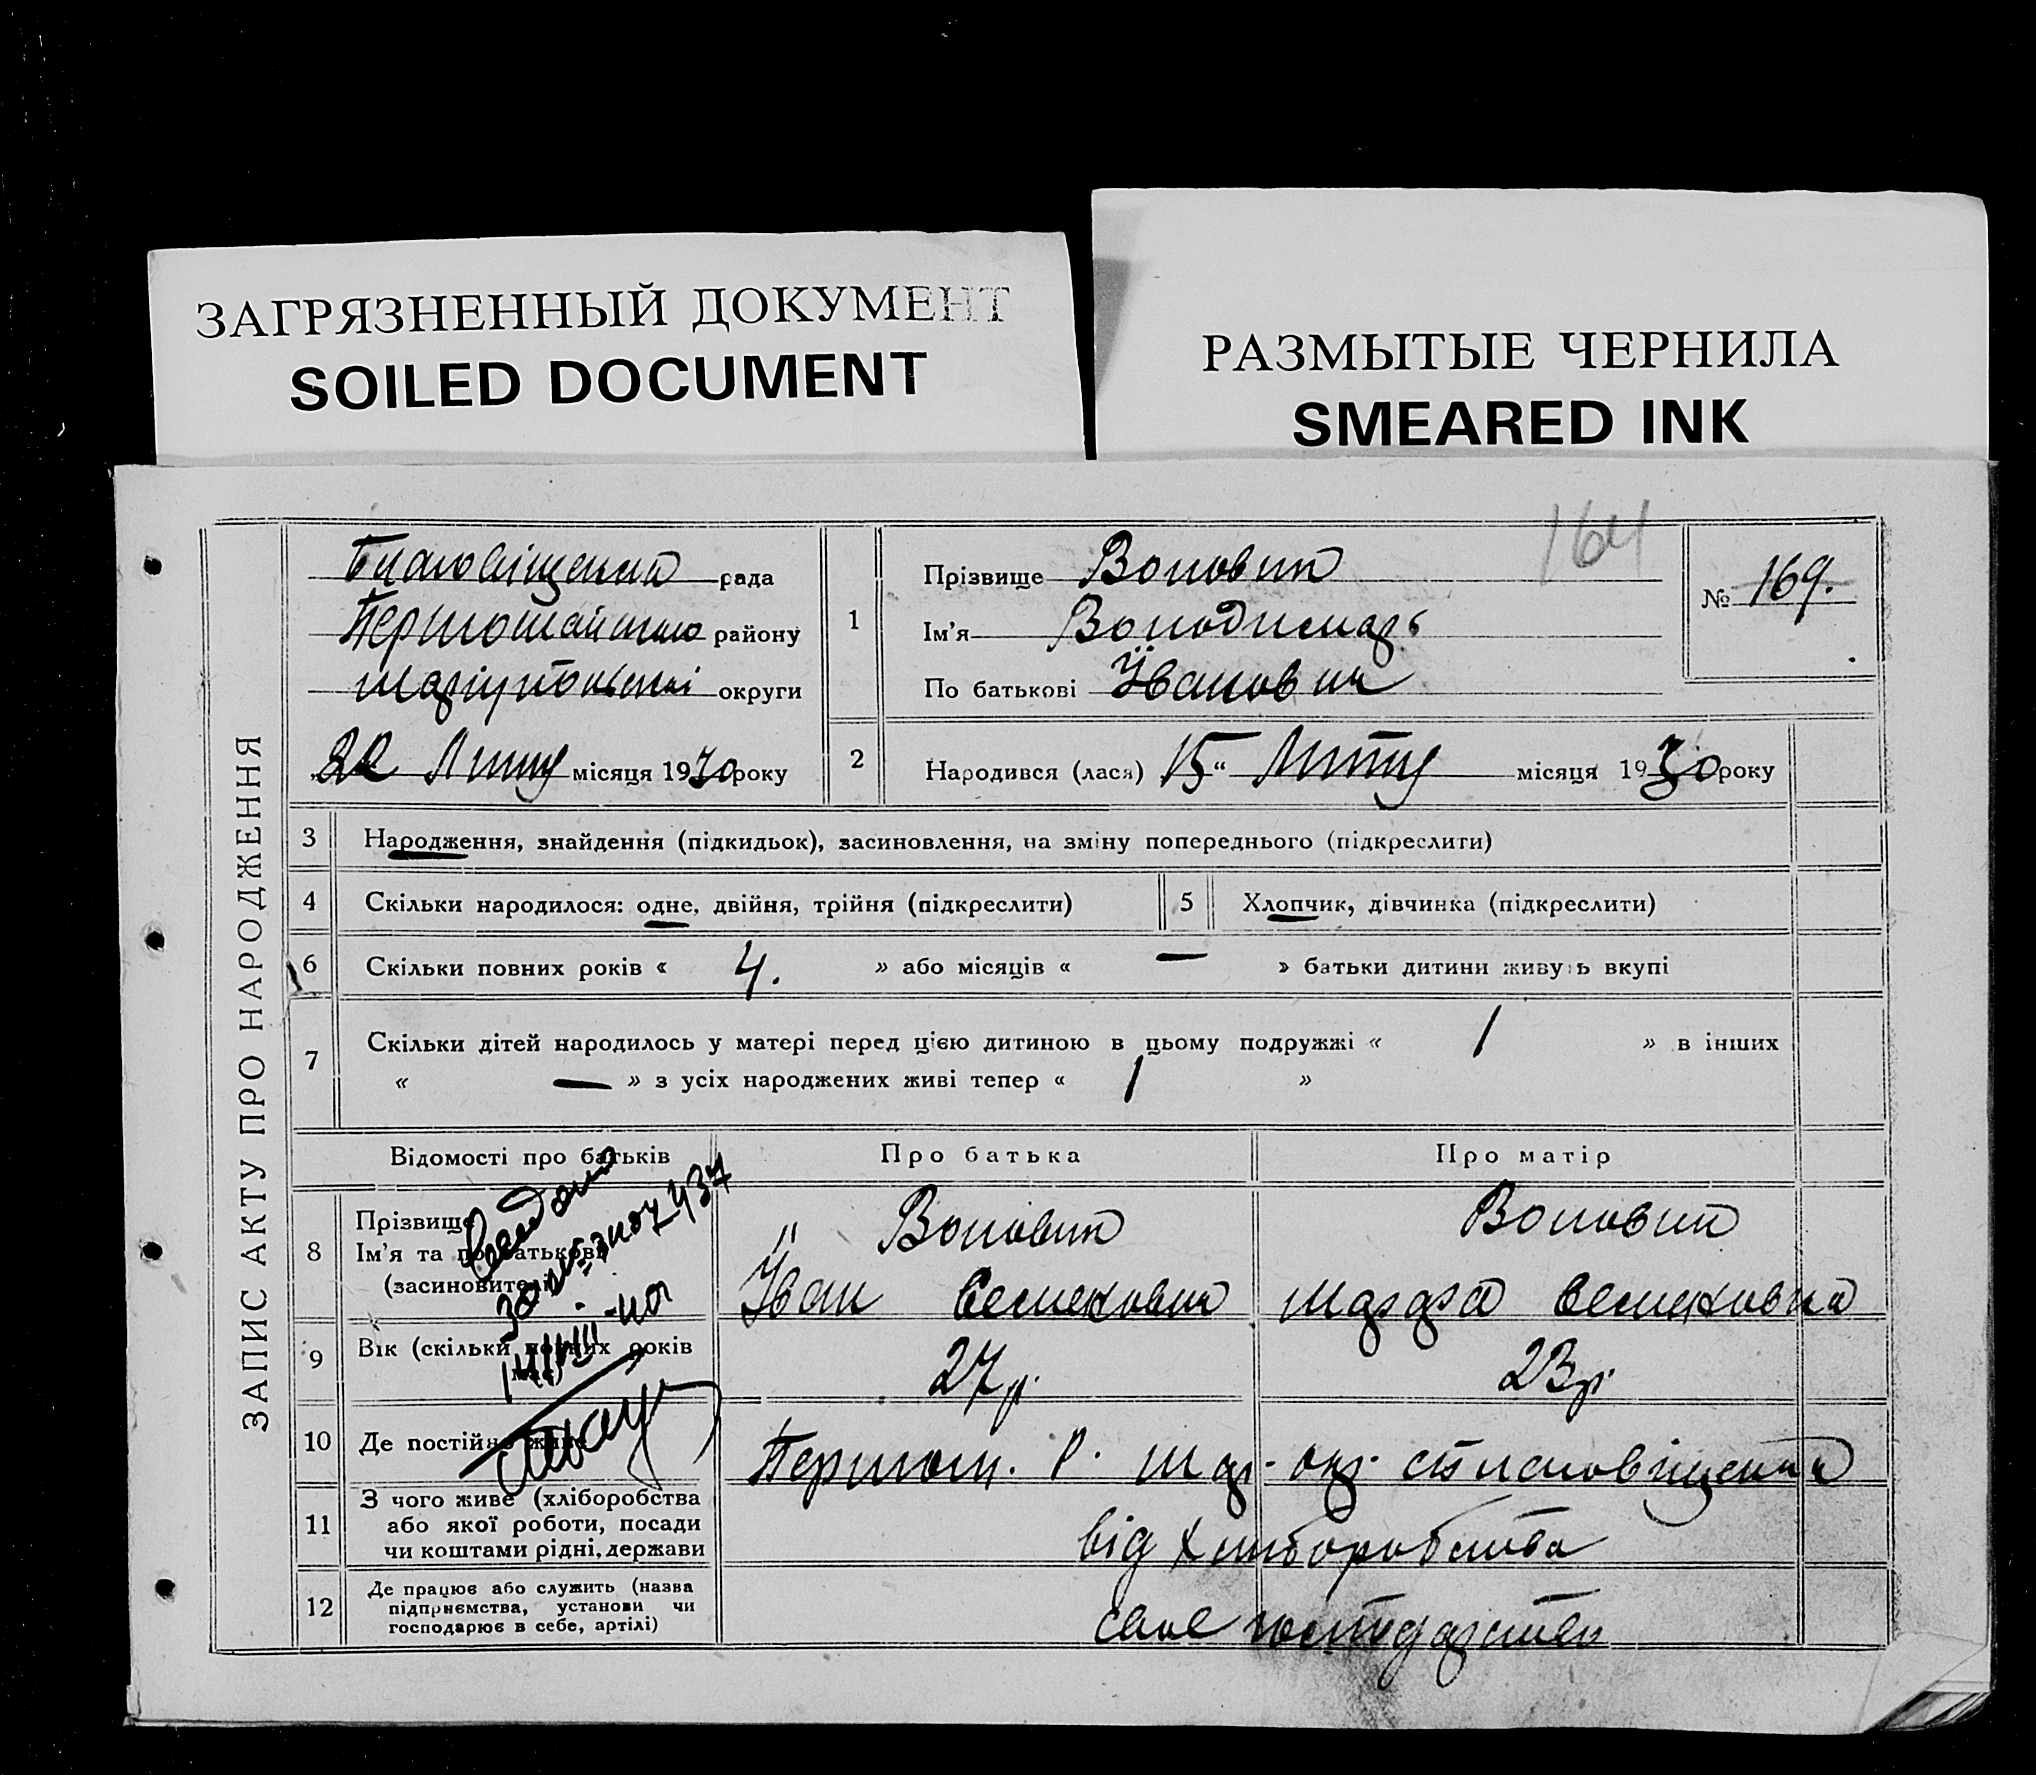 ЗАГРЯЗНЕННЫЙ ДОКУМЕНТ
SOILED DOCUMENT
РАЗМЫТЫЕ ЧЕРНИЛА
SMEARED INK
ЗАПИС АКТУ ПРО НАРОДЖЕННЯ
164
Благовіщенська рада
Першомайського району
Маріупольської округи
22 Липня місяця 1930 року
1
Прізвище Воловик
Ім'я Володимарь
По батькові Іванович
№ 169.
2
Народився (лася) 15 „ Липня місяця 1930 року
3 Народження, знайдення (підкидьок), засиновлення, на зміну попереднього (підкреслити)
4 Скільки народилося: одне, двійня, трійня (підкреслити)
5 Хлопчик, дівчинка (підкреслити)
6 Скільки повних років « 4. » або місяців « — » батьки дитини живуть вкупі
7 Скільки дітей народилось у матері перед цією дитиною в цьому подружжі « 1 » в інших
« — » з усіх народжених живі тепер « 1 »
Відомості про батьків Про батька Про матір
8 Прізвище Воловик Воловик
Ім'я та по батькові
(засновитель) Іван Семенович Марфа Семеновна
9 Вік (скільки повних років має) 27 р. 23 р.
10 Де постійно живе Першом. Р. Мар. окр. с Благовіщенка
11 З чого живе (хліборобства
або якої роботи, посади
чи коштами рідні, держави від хліборобства
12 Де працює або служить (назва
підприємства, установи чи
господарює в себе, артілі) своє господарство